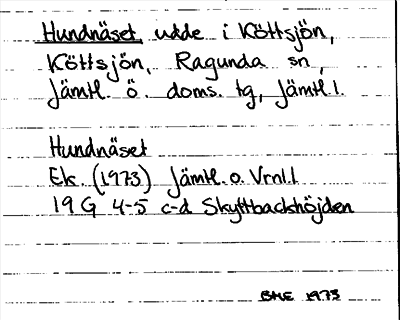 Hundnäset udde i Köttsjön,
Köttsjön, Ragunda sn,
Jämtl. ö. doms. tg, Jämtl.l.
Hundnäset
Ek. (1973) Jämtl. o. Vrnl.l
19 G 4-5 c-d Skyttbackhöjden
BME 1973